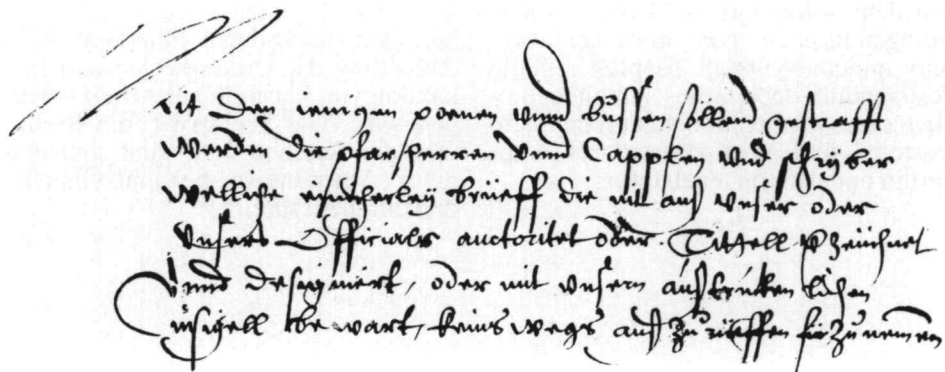 mit den ... poenen vnnd bussen sollend gestrafft
werden die pfarherren vnnd Capplen vnd schryber
wellche eyncherley brieff die nit auß vnser oder
vnsers Officials auctoritet oder Tittell
vnnd designiert, oder mit vnserm außtrukenlichen
insigell bewart, keins wegs auff zu rieffen fürzunemen